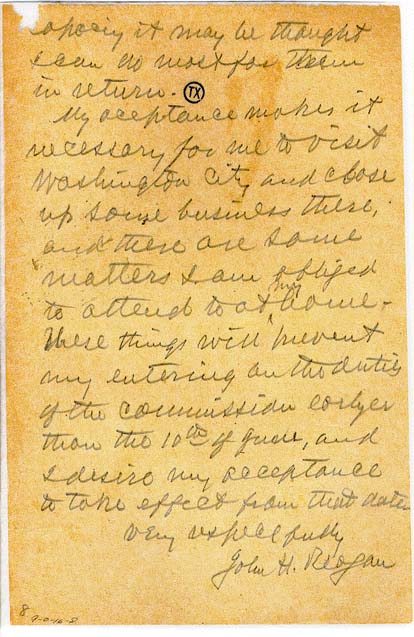 capacity it may be thought
I can do most for them
in return. TX
My aceptance makes it
necessary for me to visit
Washington City and close
up some business there,
and there are some
matters I am obliged
to attend to at my home.
These things will prevent
my entering on the duties
of the commission earlyer
than the 10th of June, and
I desire my acceptance
to take effect from that date
Very respectfully
John H. Reagan
8